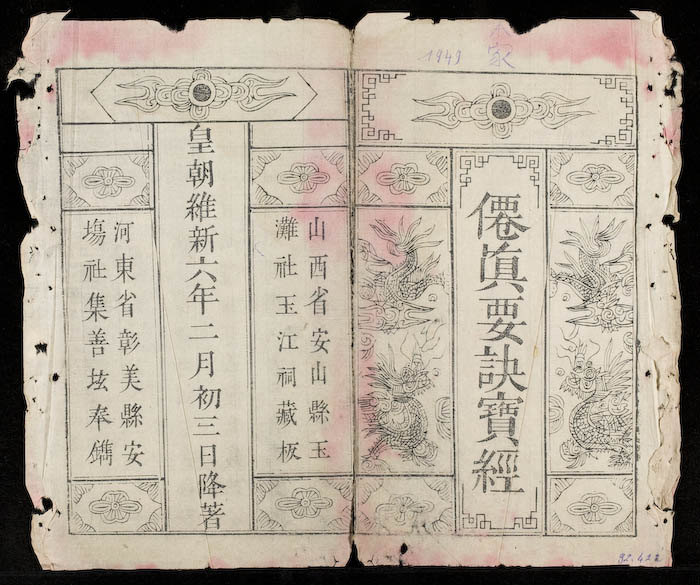 1949
僊眞要訣寶經
山西省安山縣玉
灘社玉江祠藏板
皇朝維新六年二月初三日降著
河東省彰美縣安
塲社集善坛奉鐫
92.422